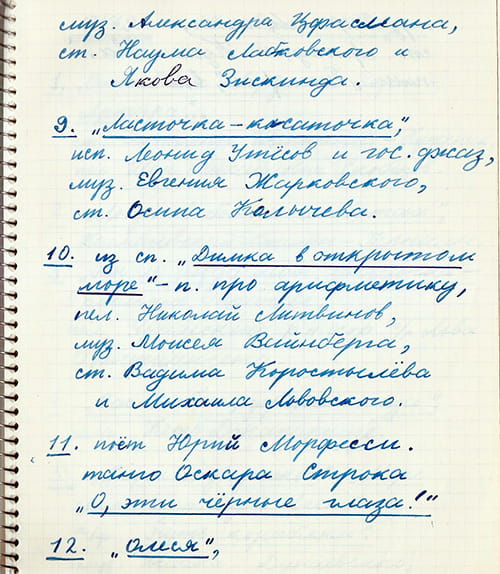 муз. Александра Цфасмана,
ст. Наума Лабковского и
Якова Зискинда.
9. „Ласточка – касаточка",
исп. Леонид Утёсов и гос. джаз,
муз. Евгения Жарковского,
ст. Осипа Колычева.
10. из сп. „Димка в открытом
море" – п. про арифметику,
пел. Николай Литвинов,
муз. Моисея Вайнберга,
ст. Вадима Коростылёва
и Михаила Львовского.
11. поёт Юрий Морфесси.
танго Оскара Строка
„О, эти чёрные глаза!"
12. „Олеся",